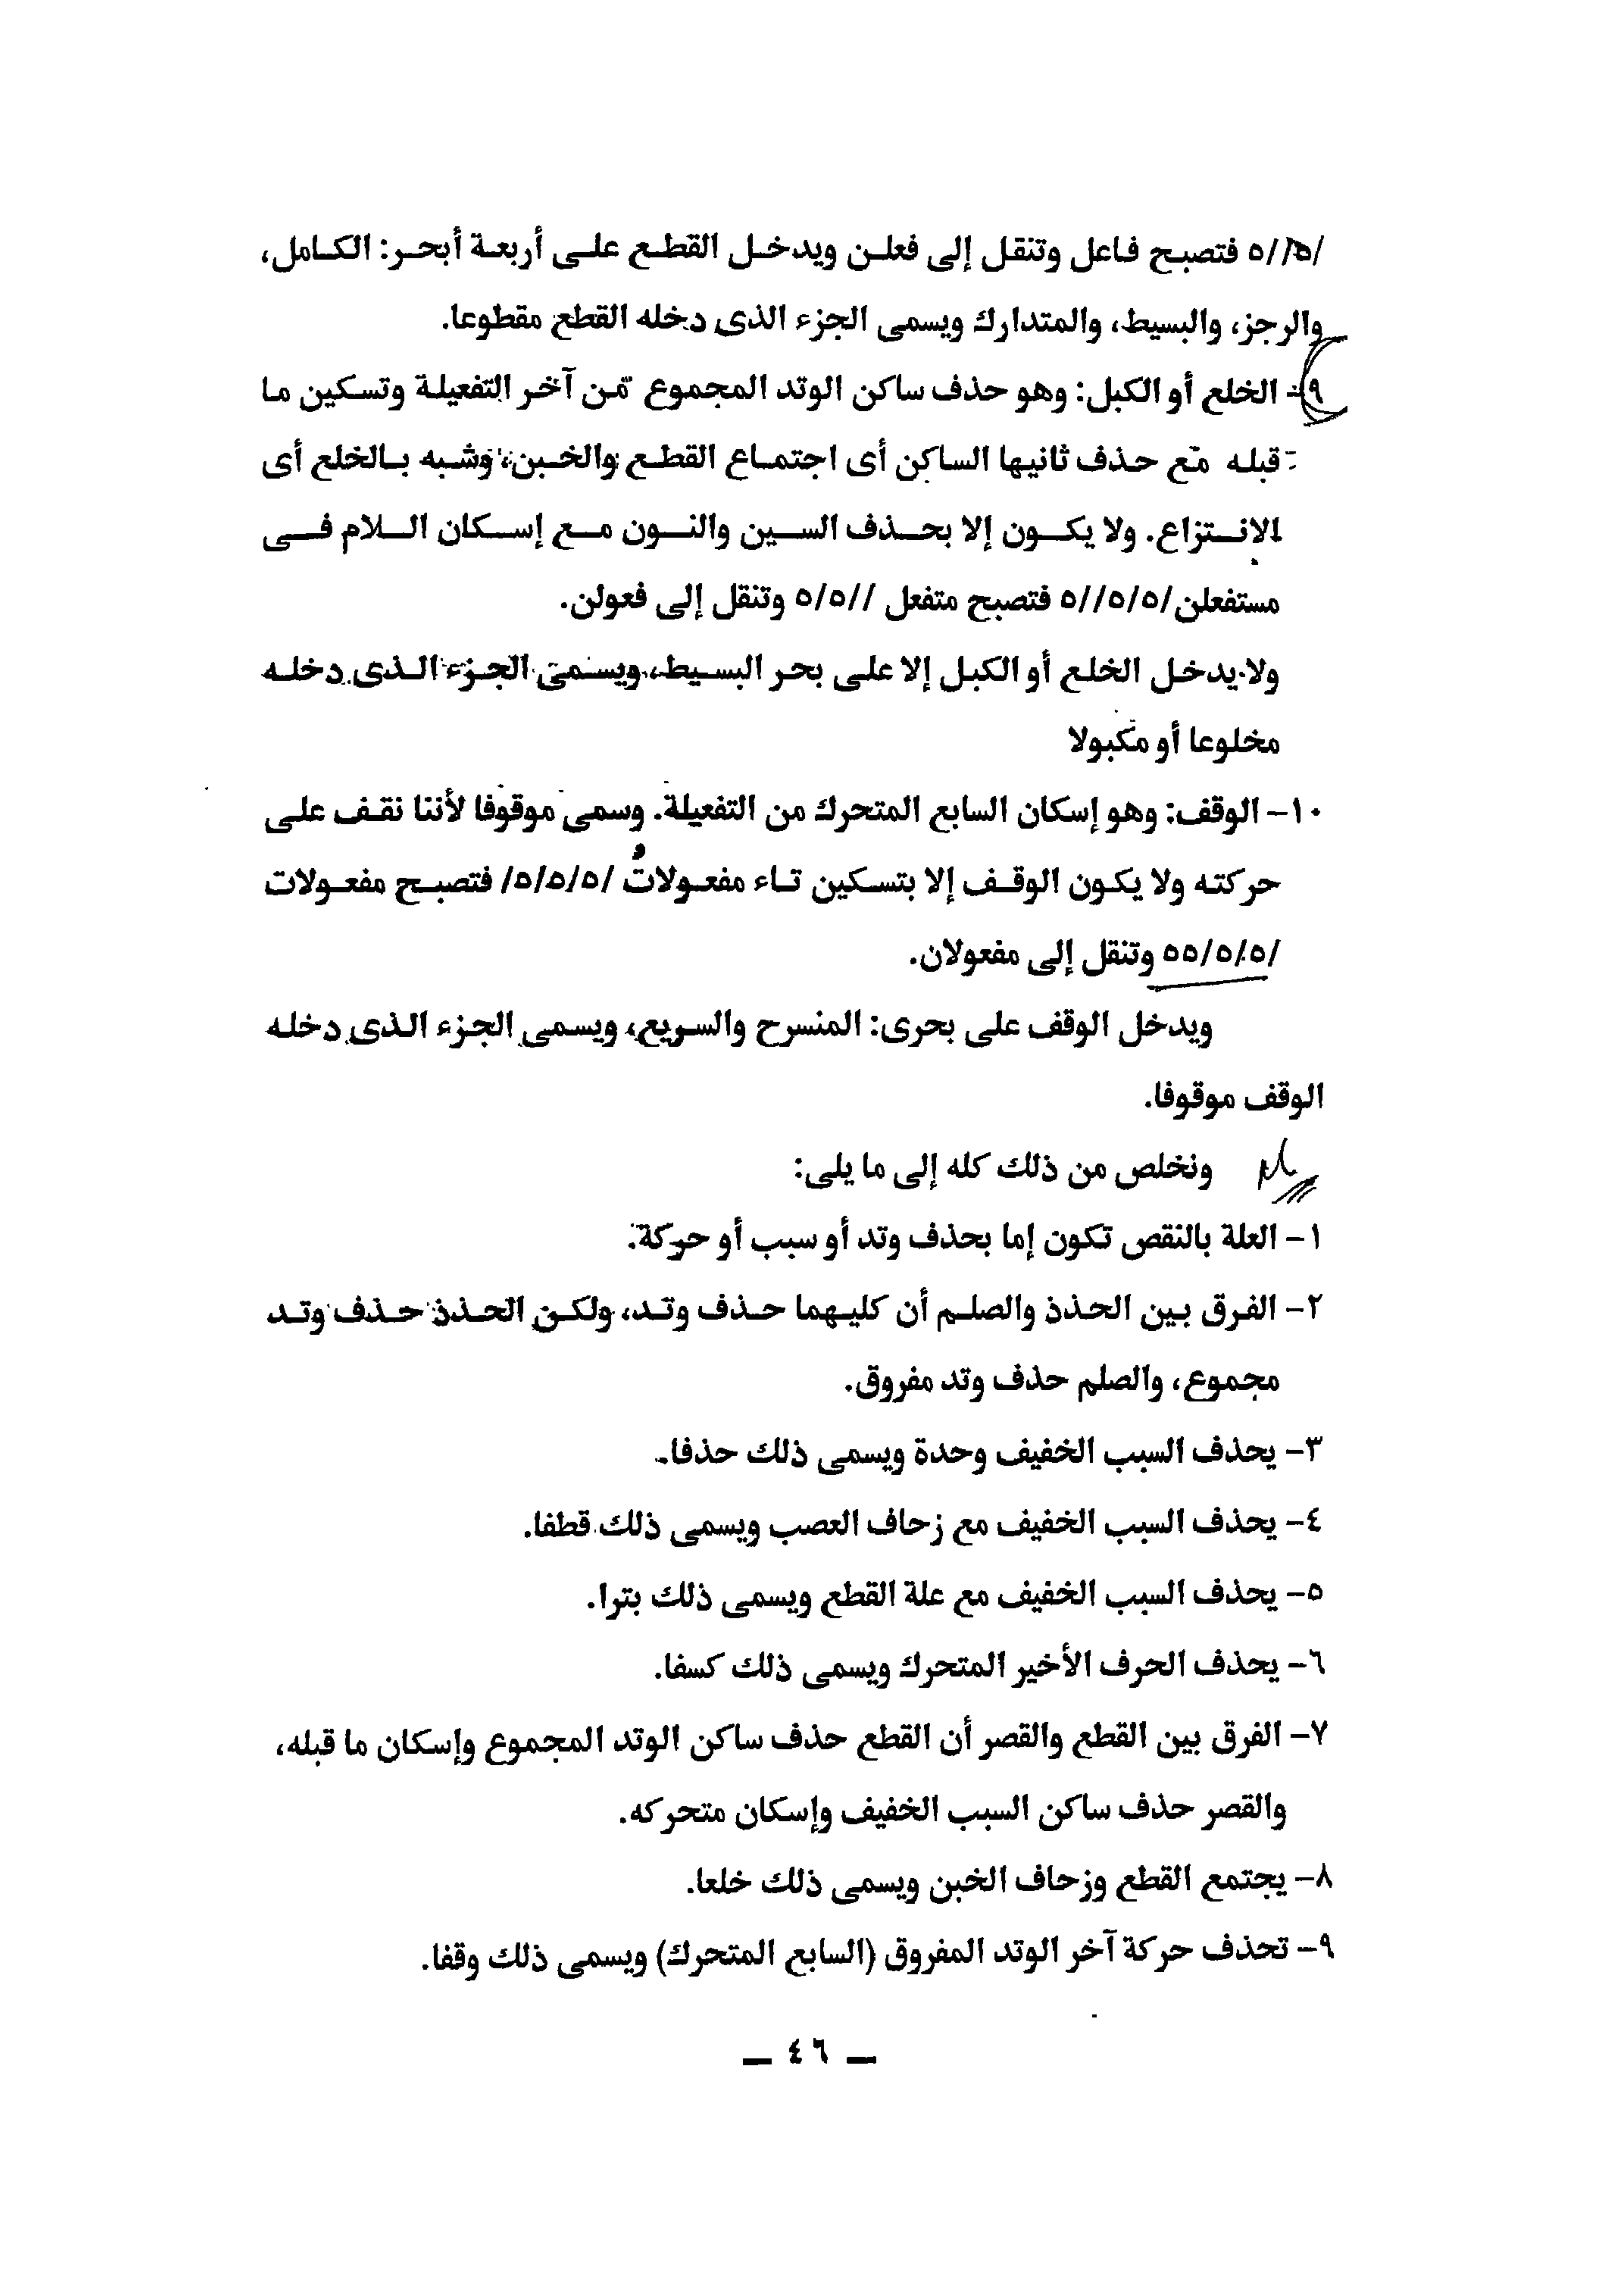 /٥//٥ فتصبح فاعل وتنقل إلى فعلن ويدخل القطع على أربعة أبحر: الكامل،
والرجز، والبسيط، والمتدارك ويسمى الجزء الذى دخله القطع مقطوعا.
٩- الخلع أو الكبل: وهو حذف ساكن الوتد المجموع من آخر التفعيلة وتسكين ما
قبله مع حذف ثانيها الساكن أى اجتماع القطع والخبن، وشبه بالخلع أى
الانتزاع. ولا يكون إلا بحذف السين والنون مع إسكان اللام فى
مستفعلن /٥/٥//٥ فتصبح متفعل //٥/٥ وتنقل إلى فعولن.
ولا يدخل الخلع أو الكبل إلا على بحر البسيط، ويسمى الجزء الذى دخله
مخلوعا أو مكبولا
١٠- الوقف: وهو إسكان السابع المتحرك من التفعيلة. وسمى موقوفا لأننا نقف على
حركته ولا يكون الوقف إلا بتسكين تاء مفعولاتُ /٥/٥/٥/ فتصبح مفعولات
/٥/٥/٥٥ وتنقل إلى مفعولان.
ويدخل الوقف على بحرى: المنسرح والسريع، ويسمى الجزء الذى دخله
الوقف موقوفا.
ونخلص من ذلك كله إلى ما يلى:
١- العلة بالنقص تكون إما بحذف وتد أو سبب أو حركة.
٢- الفرق بين الحذذ والصلم أن كليهما حذف وتد، ولكن الحذذ حذف وتد
مجموع، والصلم حذف وتد مفروق.
٣- يحذف السبب الخفيف وحدة ويسمى ذلك حذفا.
٤- يحذف السبب الخفيف مع زحاف العصب ويسمى ذلك قطفا.
٥- يحذف السبب الخفيف مع علة القطع ويسمى ذلك بترا.
٦- يحذف الحرف الأخير المتحرك ويسمى ذلك كسفا.
٧- الفرق بين القطع والقصر أن القطع حذف ساكن الوتد المجموع وإسكان ما قبله،
والقصر حذف ساكن السبب الخفيف وإسكان متحركه.
٨- يجتمع القطع وزحاف الخبن ويسمى ذلك خلعا.
٩- تحذف حركة آخر الوتد المفروق (السابع المتحرك) ويسمى ذلك وقفا.
— ٤٦ —